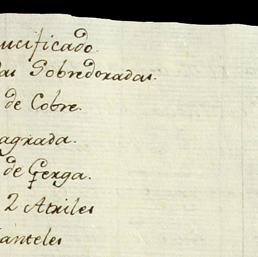 ucificado.
das Sobredoradas.
de Cobre.
agrada.
de Gerga.
2 Atriles
anteles